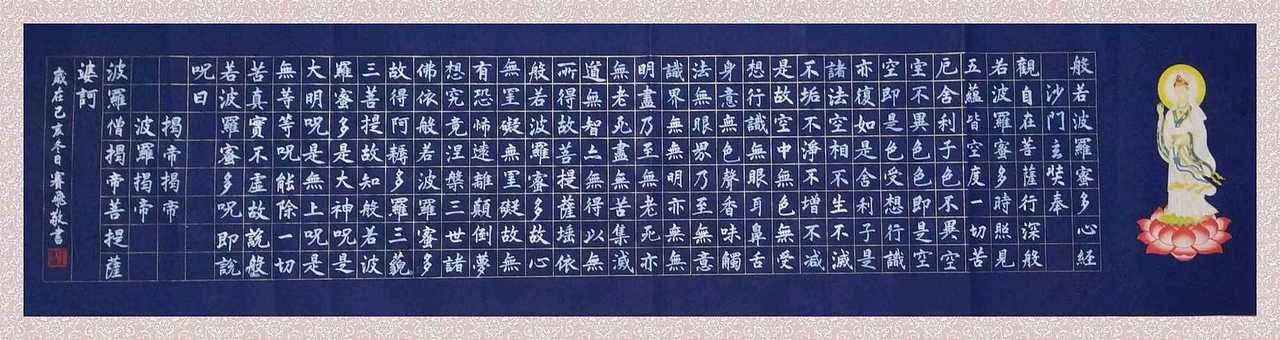 般若波羅蜜多心經
沙門玄奘奉
觀自在菩薩行深般
若波羅蜜多時照見
五蘊皆空度一切苦
厄舍利子色不異空
空不異色色即是空
空即是色受想行識
亦復如是舍利子是
諸法空相不生不滅
不垢不淨不增不减
是故空中無色無受
想行識無眼耳鼻舌
身意無色聲香味觸
法無眼界乃至無意
識界無無明亦無無
明盡乃至無老死亦
無老死盡無苦集滅
道無智亦無得以無
所得故菩提薩埵依
般若波羅蜜多故心
無罣礙無罣礙故無
有恐怖遠離顛倒夢
想究竟涅槃三世諸
佛依般若波羅蜜多
故得阿耨多羅三藐
三菩提故知般若波
羅蜜多是大神呪是
大明呪是無上呪是
無等等呪能除一切
苦真實不虛故說般
若波羅蜜多呪即說
呪曰
揭帝揭帝
波羅揭帝
波羅僧揭帝菩提薩
婆訶
歲在己亥冬日賽飛敬書